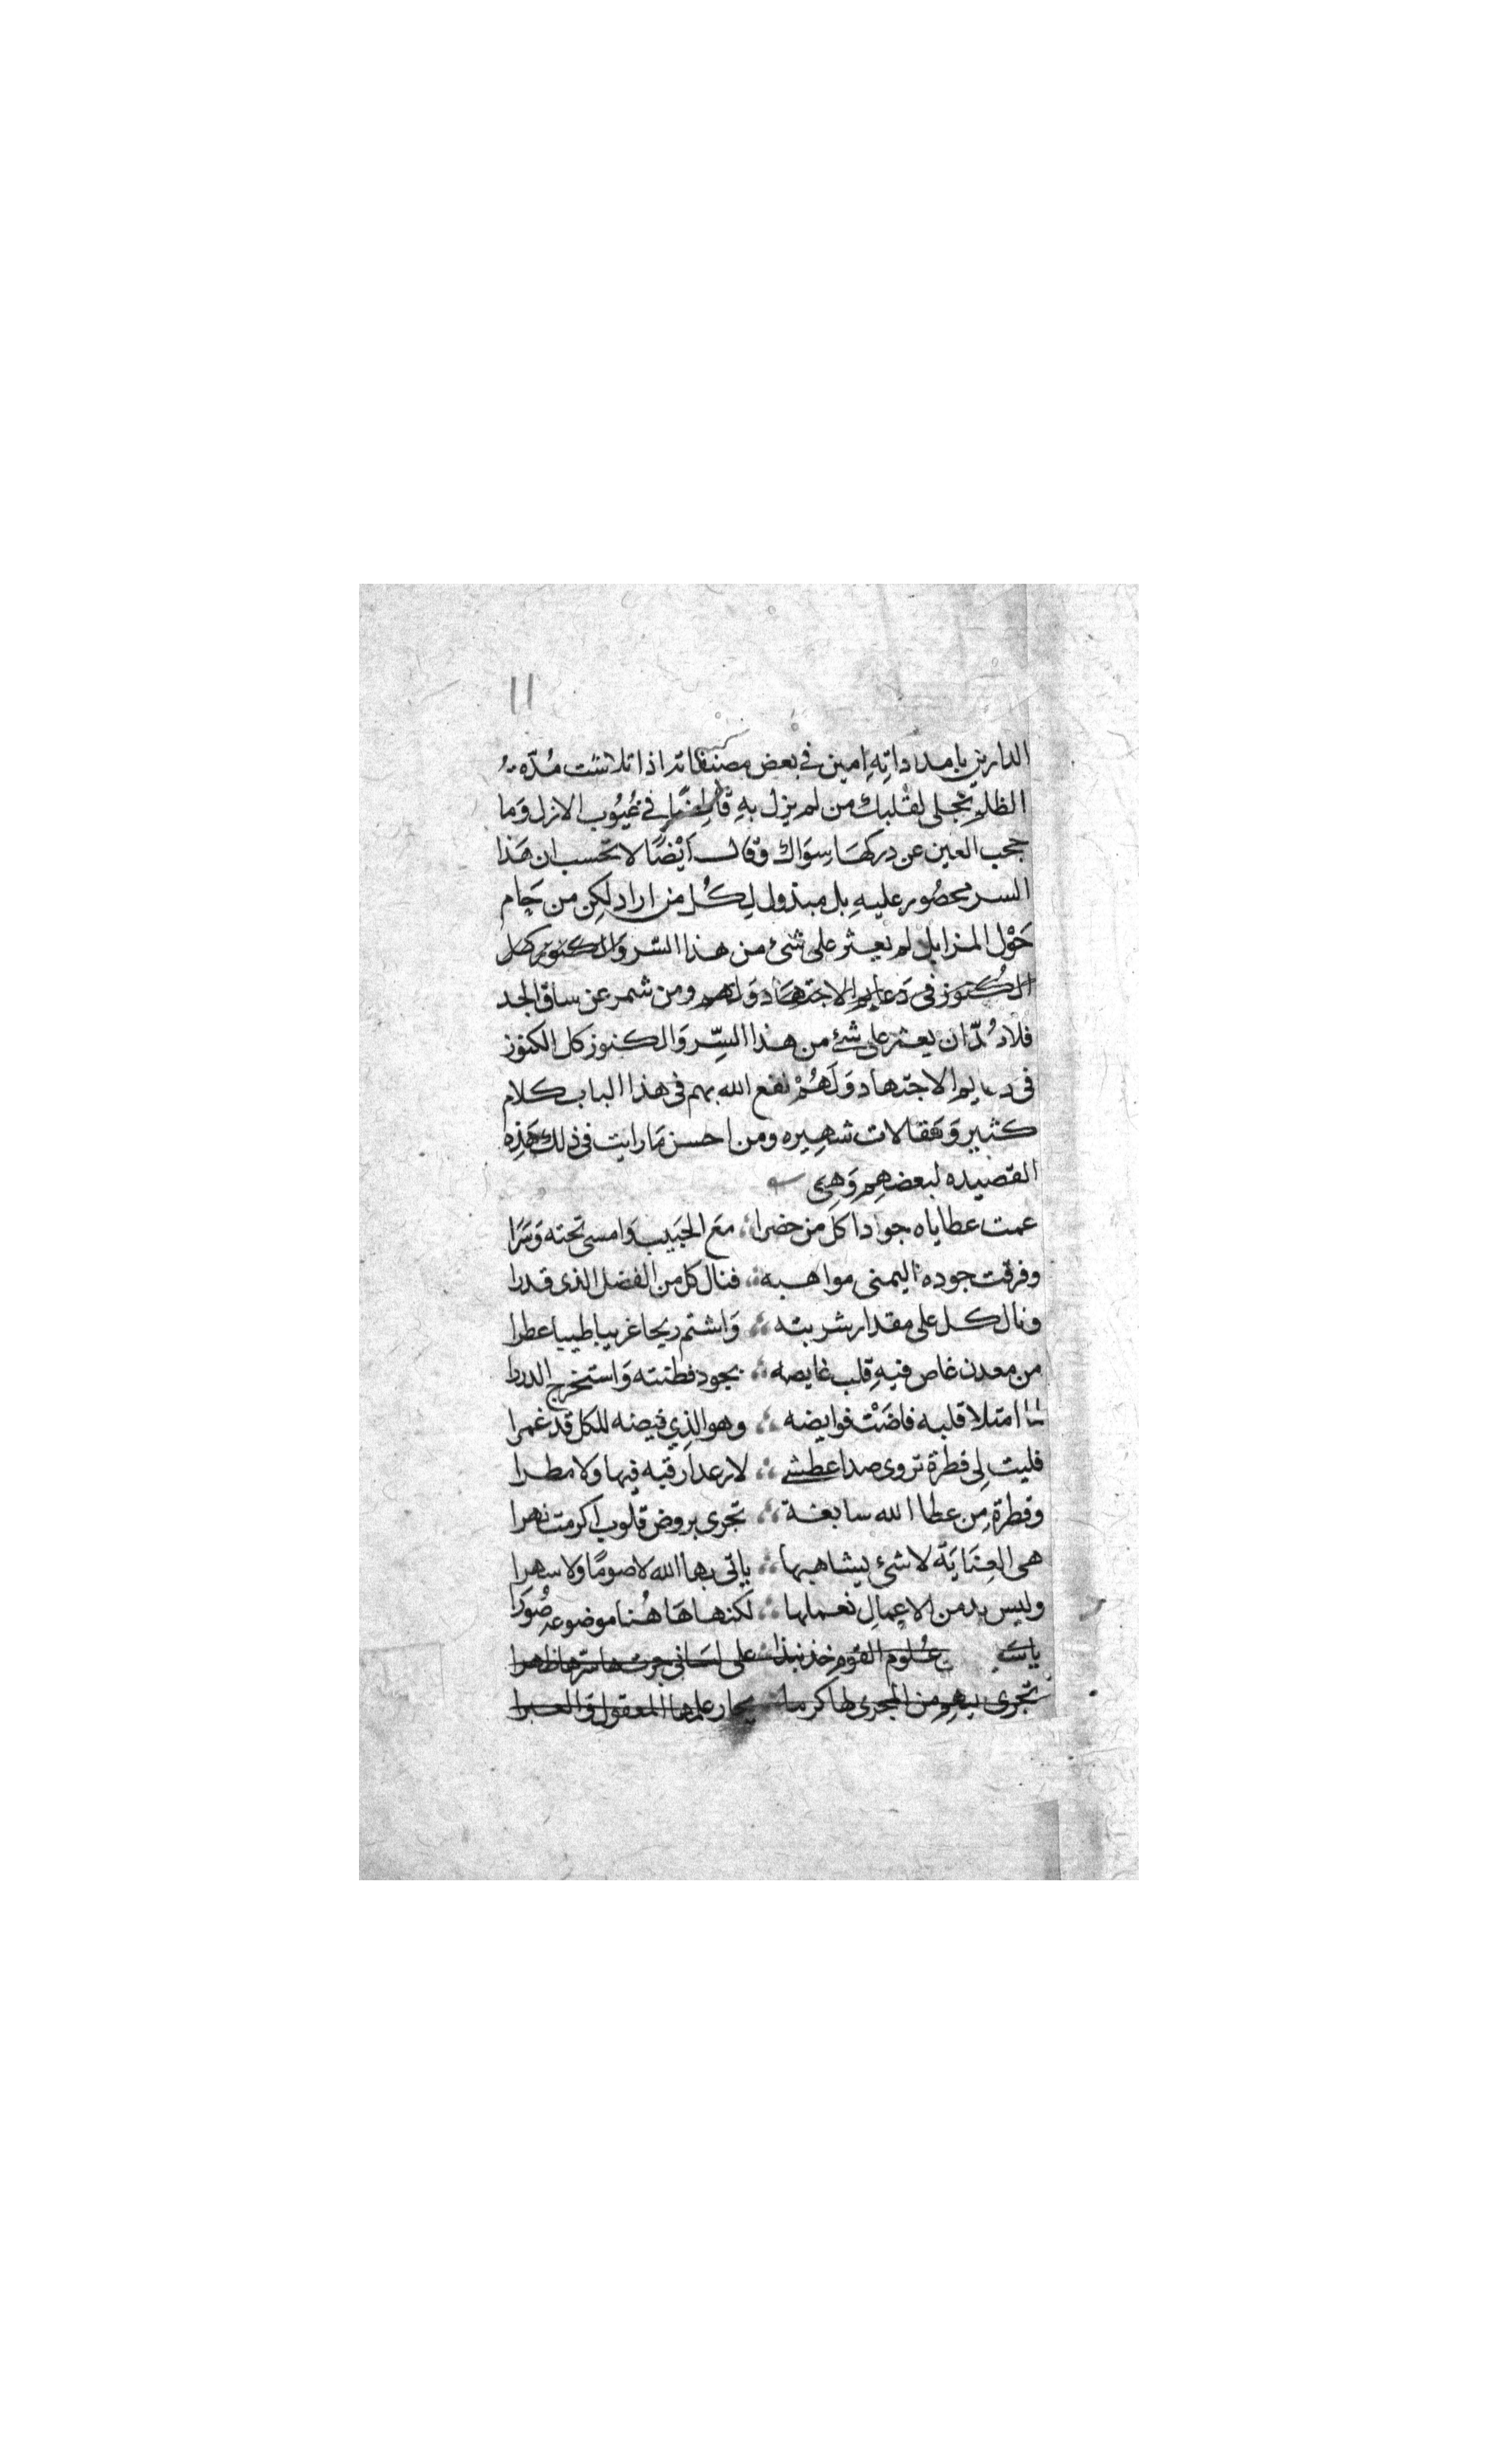 ١١
الدارين بامداداتِهِ امين في بعض مصنفاته اذا تلاشت مُدّه
الظلم تجلى لقلبك من لم يزل بهِ في غيُوب الازل وَما
حجب العين عن دركهَا سِوَاك وقال ايْضًا لا تحسب ان هَذا
السر محصُور عليهِ بل مبذول لِكُل من اراد لكِن من حَام
حَوْل المزابل لم يعثر على شئ من هذا السّر وَالكنوز كل
الكُنوز فى دَعايم الاجتهَاد وَلهم ومن شمر عن ساق الجد
فلا بُدّ ان يعثر على شئ من هذا السِّر وَالكنوز كل الكنوز
فى الاجتهاد وَلَهُمْ نفع الله بهم فى هذا الباب كلام
كثير وَمَقالات شهِيره ومن احسن مَا رايت فى ذلك هَذِه
القصيده لبعضهِم وَهِىَ
عمت عطاياه جوادا كل من حضرا مَع الحَبيب وَامسى تحته وَسَرَا
وفرقت جوده اليمنى مواهبه فنال كل من الفضل الذى قدرا
ونال كل على مقدار شربته وَاشتم ريحا غريبا طيبا عطرا
من معدن غاص فيهِ قلب غايصه بجود فطنته وَاستخرج الدررا
لما امتلا قلبه فاضَتْ فوايضه وهو الذِي فيضه للكل قد غمرا
فليت لِى قطرة تروى صدا عطشى لا رعدا رقبه فيها ولا مطرا
وقطرة مِن عطا الله سابغة تجرى بروض قلوب اكرمت نهرا
هى العِنَايَة لا شئ يشابهها ياتى بها الله لا صومًا ولا سهرا
وليس بد من الاعمال نعملها لكنها هَا هُنا موضوعه صُوَرَا
علُوم القوم خذ نبذا على لسَانى جرت سرها ظهرا
تجرى بهم من المجرى لها كرما يحار علمها المعقول وَالعبرا